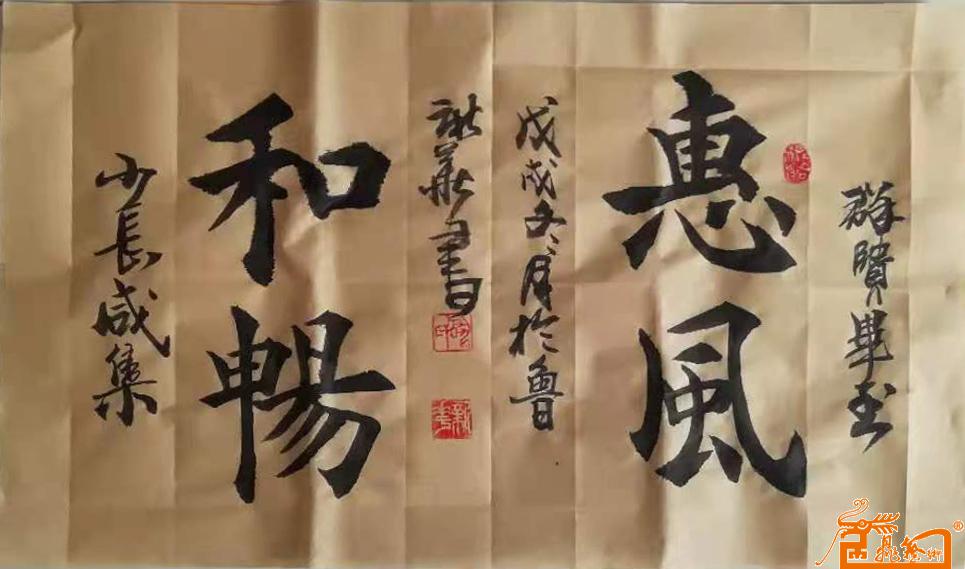 群賢畢至
惠風
戊戌冬月於魯
書
和暢
少長咸集